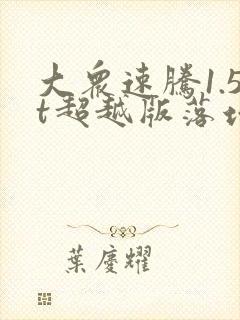 大众速騰1.5
t超越版落地
葉慶耀